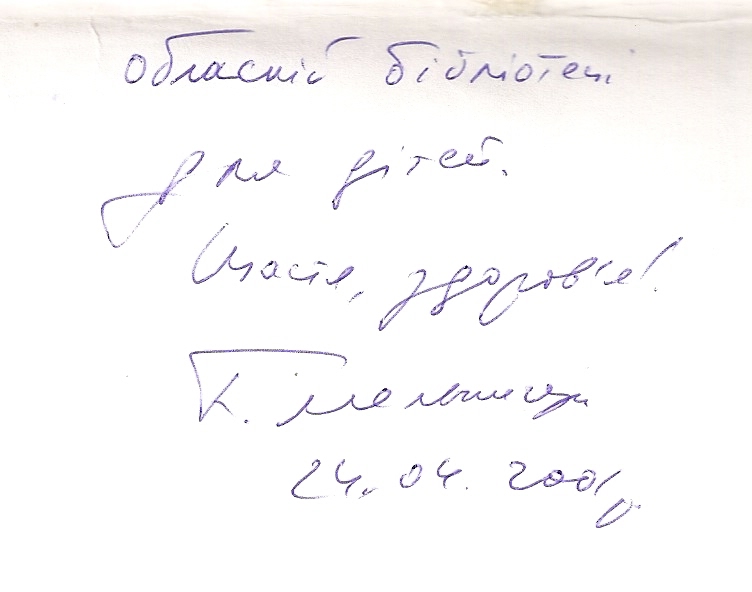 Обласній бібліотеці
для дітей.
Щастя, здоров'я!
К.
24.04.2001р.